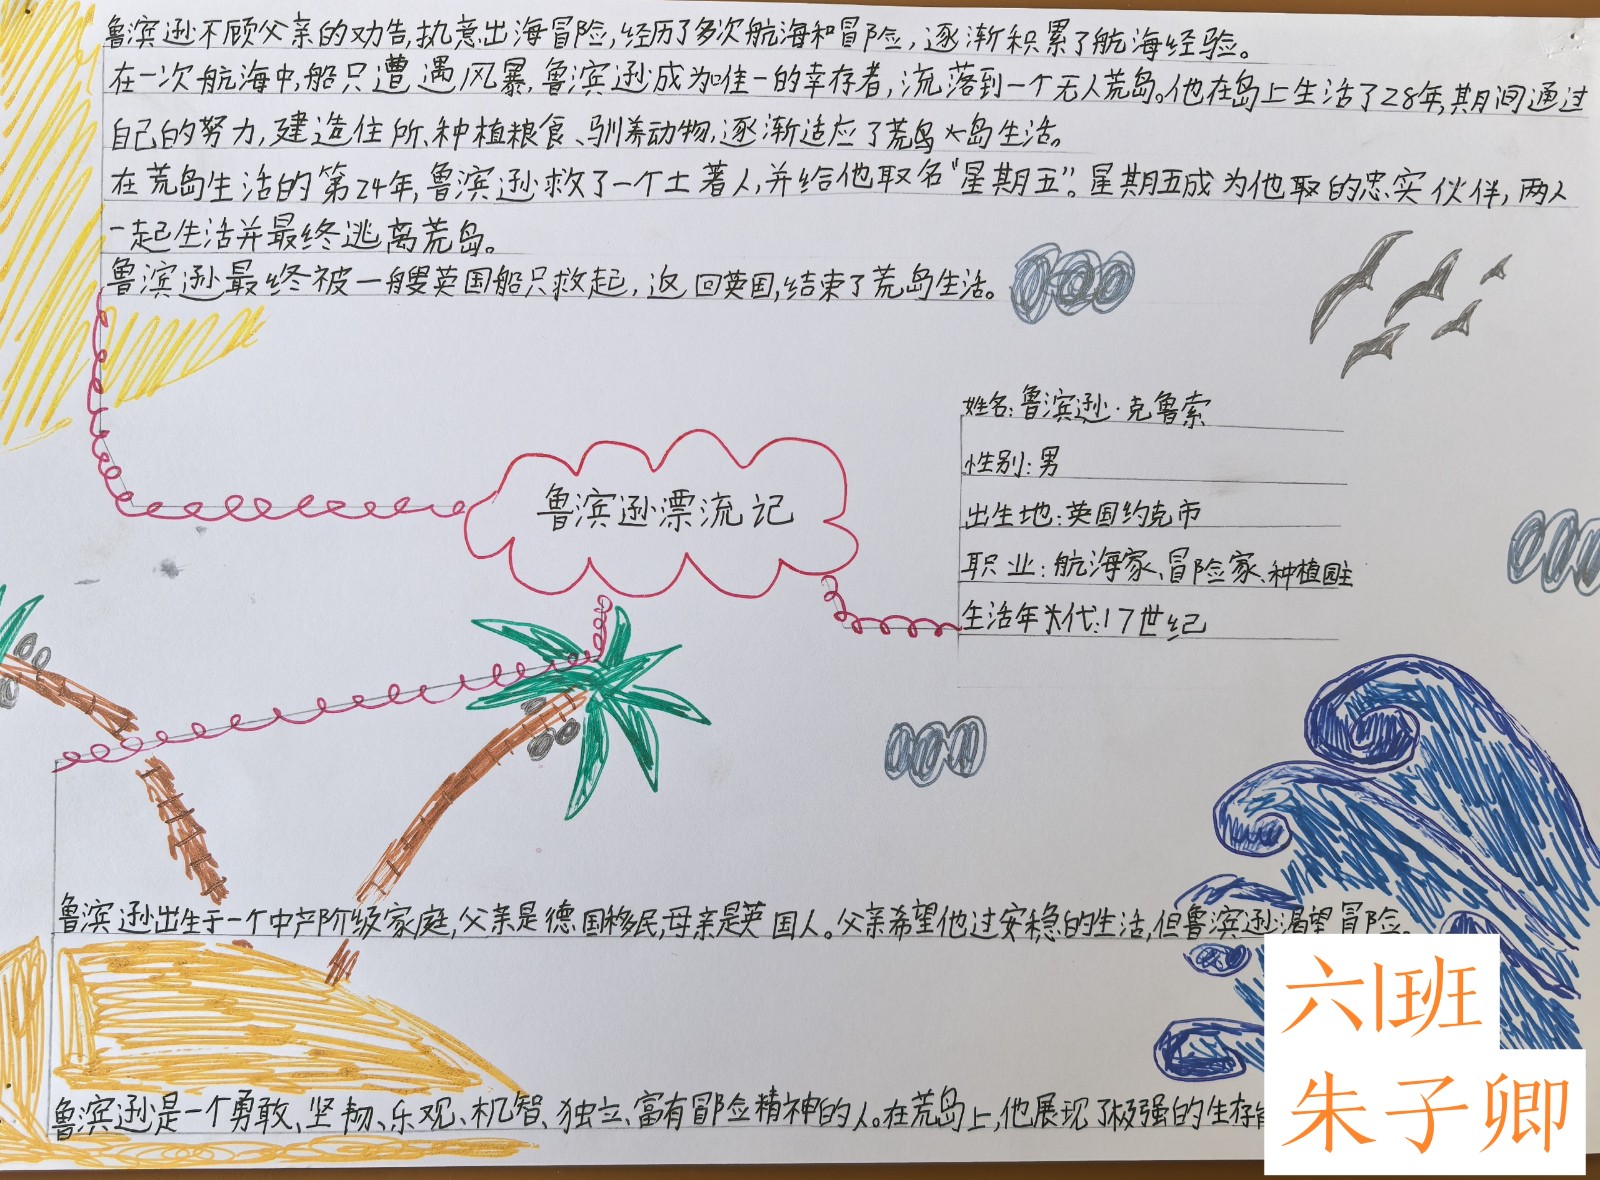 鲁滨逊不顾父亲的劝告,执意出海冒险,经历了多次航海和冒险,逐渐积累了航海经验。
在一次航海中,船只遭遇风暴,鲁滨逊成为唯一的幸存者,流落到一个无人荒岛。他在岛上生活了28年,期间通过
自己的努力,建造住所、种植粮食、驯养动物,逐渐适应了荒岛岛生活。
在荒岛生活的第24年,鲁滨逊救了一个土著人,并给他取名“星期五”。星期五成为他取的忠实伙伴,两人
一起生活并最终逃离荒岛。
鲁滨逊最终被一艘英国船只救起,返回英国,结束了荒岛生活。
姓名:鲁滨逊·克鲁索
性别:男
出生地:英国约克市
职业:航海家、冒险家、种植园主
生活年代:17世纪
鲁滨逊漂流记
鲁滨逊出生于一个中产阶级家庭,父亲是德国移民,母亲是英国人。父亲希望他过安稳的生活,但鲁滨逊渴望冒险。
鲁滨逊是一个勇敢、坚韧、乐观、机智、独立、富有冒险精神的人。在荒岛上,他展现了极强的生存
六1班
朱子卿